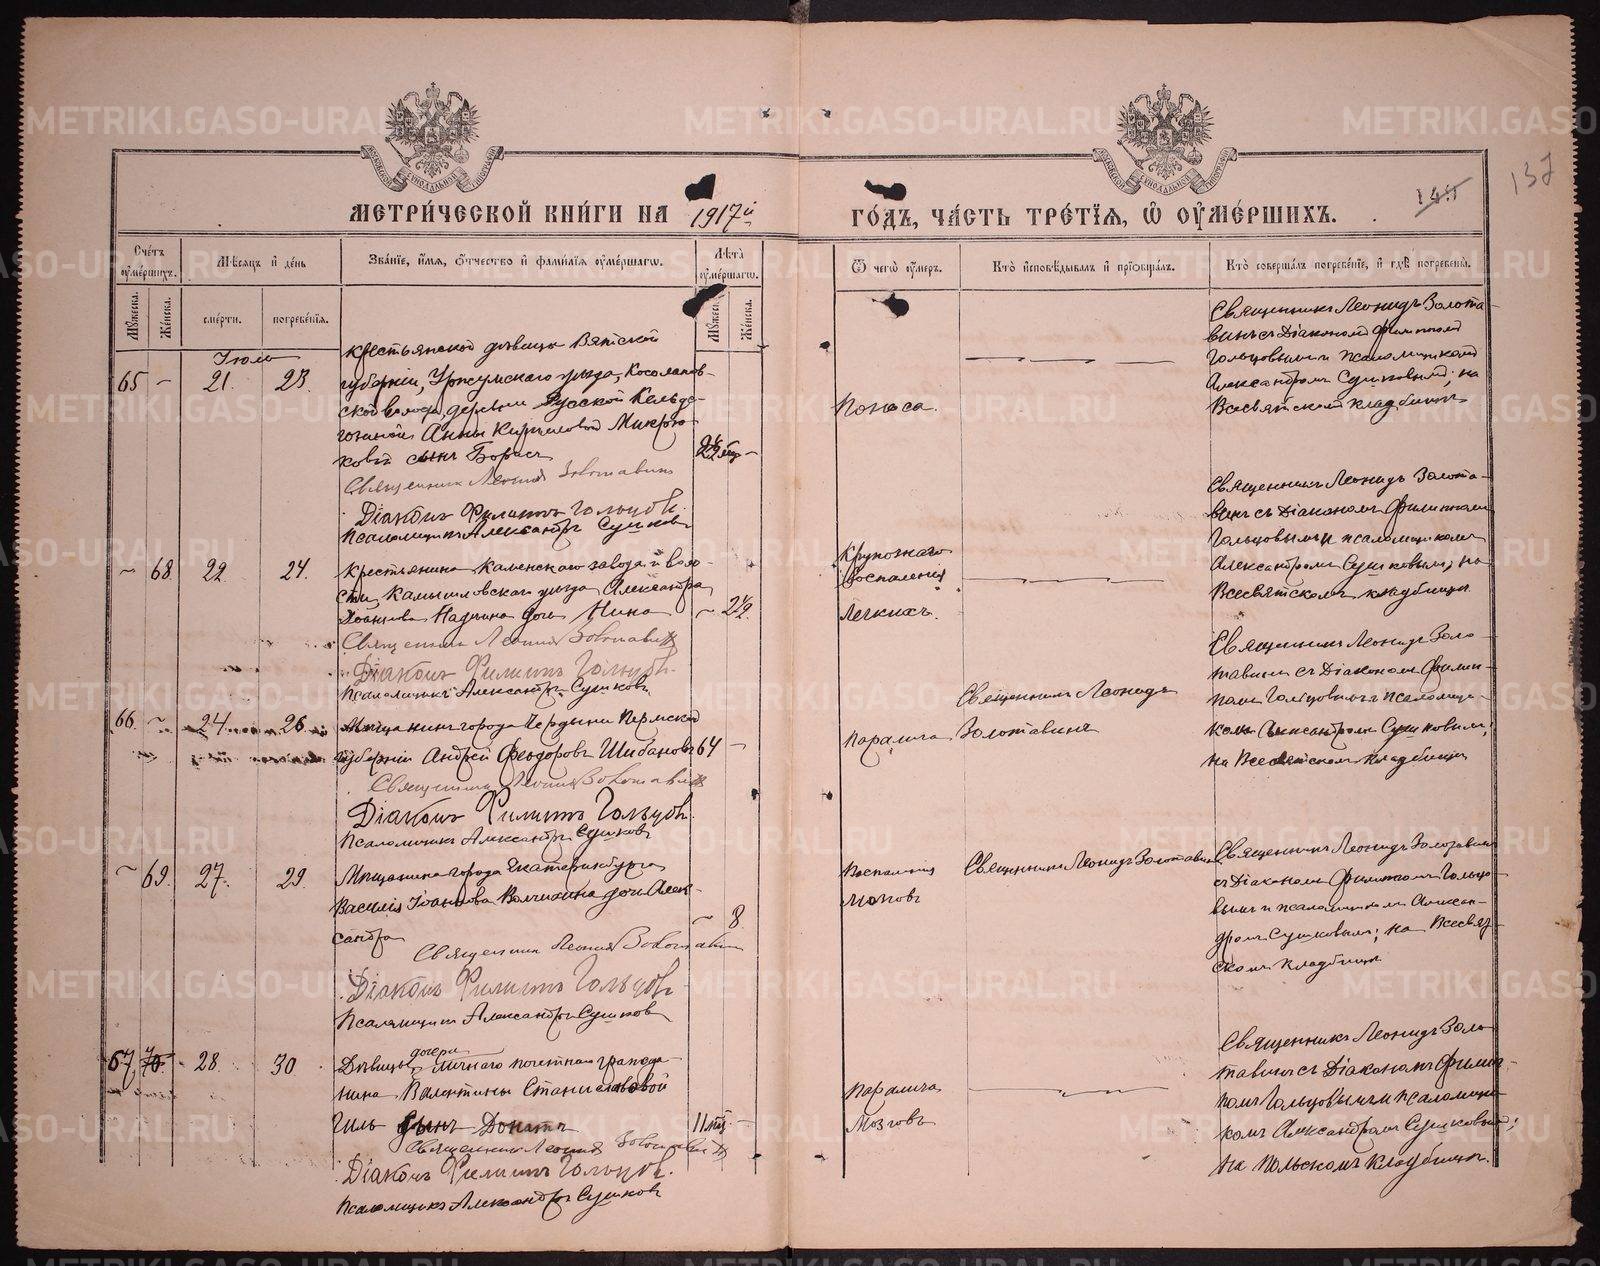 МЕТРИ́ЧЕСКОЙ КНИ́ГИ НА 1917й ГО́ДЪ, ЧА́СТЬ ТРЕ́ТІѦ, Ѡ҆ ОУ҆МЕ́РШИХЪ.
137
Сче́тъ оу҆ме́ршихъ.
Мѣ́сѧцъ и҆ де́нь
Зва́нїе, и҆́мѧ, ѻ҆́тчество и҆ фами́лїѧ оу҆ме́ршагѡ.
Лѣ́та оу҆ме́ршагѡ.
Ѿ чегѡ̀ оу҆́меръ.
Кто̀ и҆сповѣ́дывалъ и҆ прїѡбща́лъ.
Кто̀ соверша́лъ погребе́нїе, и҆ гдѣ̀ погребены̀.
Мꙋ́жеска.
Же́нска.
сме́рти.
погребе́нїѧ.
Мꙋ́жеск.
Же́нска.
Іюль
65 – 21. 23.
Крестьянской дѣвицы Вятской
губерніи, Уржумскаго уѣзда, Косолапов-
ской волости, деревни Русской
Анны Кирилловой Микрю-
ковой сынъ Борисъ
Священникъ Леонид Золотавинъ
Діаконъ Филиппъ Гольцовъ.
Псаломщикъ Александръ Сушковъ
Поноса.
Священникъ Леонидъ Золота-
винъ съ Діакономъ Филиппомъ
Гольцовымъ и псаломщикомъ
Александромъ Сушковымъ; на
Всесвятскомъ кладбищѣ
~ 68. 22. 24.
Крестьянина Каменскаго завода и воло-
сти, Камышловскаго уѣзда Александра
Іоаннова дочь Нина ~ 2½.
Священникъ Леонид Золотавин
Діаконъ Филиппъ Гольцовъ.
Псаломщикъ Александръ Сушковъ
Крупознаго
воспаленія
легкихъ.
Священникъ Леонидъ Золота-
винъ съ Діакономъ Филиппомъ
Гольцовымъ и псаломщикомъ
Александромъ Сушковымъ; на
Всесвятскомъ кладбищѣ
66. ~ 24. 26.
Мѣщанинъ города Чердыни Пермской
губерніи Андрей Феодоровъ Шибановъ 64 –
Священникъ Леонид Золотавин
Діаконъ Филиппъ Гольцовъ.
Псаломщикъ Александръ Сушковъ
Паралича
Священникъ Леонидъ
Золотавинъ
Священникъ Леонидъ Золо-
тавинъ съ Діакономъ Филип-
помъ Гольцовымъ и псаломщи-
комъ Александромъ Сушковымъ;
на Всесвятскомъ кладбищѣ
~ 69. 27. 29.
Мѣщанина города Екатеринбурга
Василія Іоаннова дочь Алек-
сандра ~ 8.
Священник Леонид Золотавин
Діаконъ Филиппъ Гольцовъ
Псаломщикъ Александръ Сушковъ
Воспаленія
мозговъ
Священникъ Леонидъ Золотавинъ
Священникъ Леонидъ Золотавинъ
съ Діакономъ Филиппомъ Гольцо-
вымъ и псаломщикомъ Алексан-
дромъ Сушковымъ; на Всесвят-
скомъ кладбищѣ
67. 28. 30.
Дѣвицы дочери личнаго почетнаго гражда-
нина Валентины Станиславовой
Гиль сынъ Донатъ 11 мѣс. –
Священникъ Леонид Золотавин
Діаконъ Филиппъ Гольцовъ.
Псаломщикъ Александръ Сушковъ
Паралича
мозговъ
Священникъ Леонидъ Золо-
тавинъ съ Діакономъ Филип-
помъ Гольцовымъ и псаломщи-
комъ Александромъ Сушковымъ;
на Польскомъ кладбищѣ.
METRIKI.GASO-URAL.RU